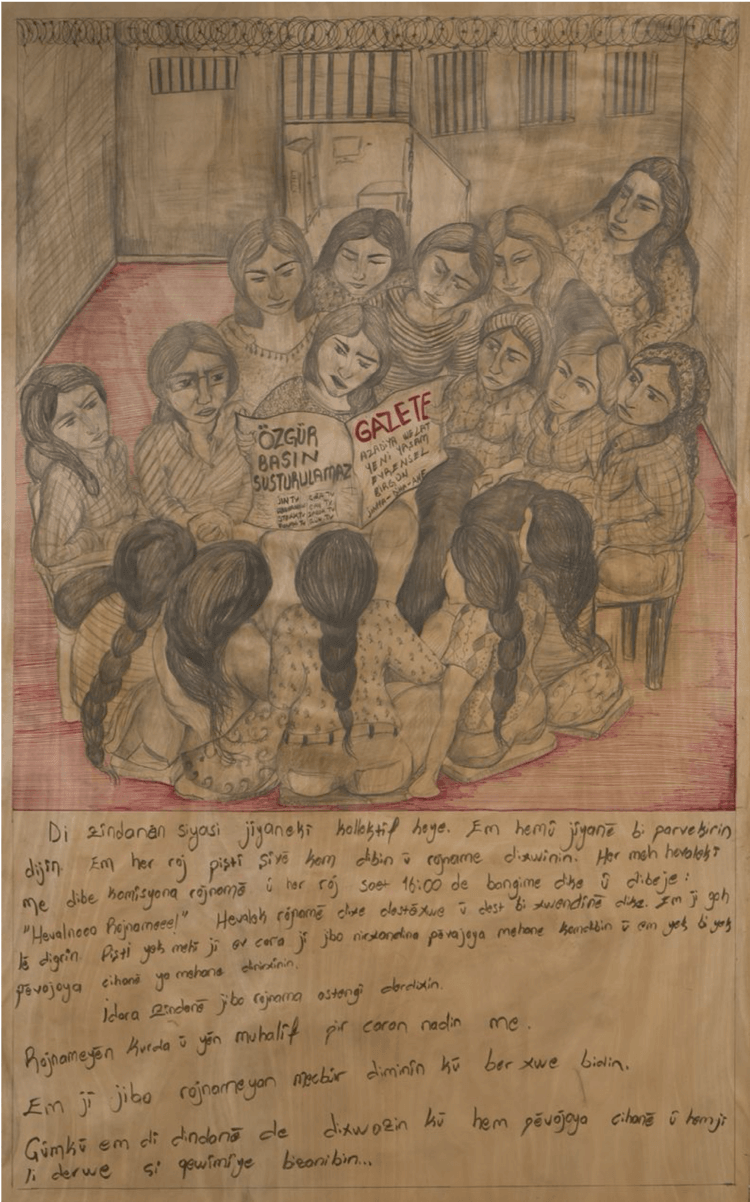 ÖZGÜR
BASIN
SUSTURULAMAZ
JIN TV
GAZETE
AZADİYA WELAT
YENİ YAŞAM
EVRENSEL
BİRGÜN
Di zindanên siyasi jîyanekî kollektîf heye. Em hemû jîyanê bi parvekirin
dijîn. Em her roj piştî şîvê kom dibin û rojname dixwînin. Her meh hevalekî
me dibe komîsyona rojnamê û her roj saet 16:00 de bangime dike û dibeje:
"Hevalnooo Rojnameee!" Hevalek rojnamê dixe destêxwe û dest bi xwendinê dike. Em jî goh
lê digrin. Piştî yek mehî jî ev cara jî jibo nirxandina pêvajoya mehane komdibin û em yek bi yek
pêvajoya cihanê ya mehane dinirxînin.
Îdara zindanê jibo rojnama astengî derdixin.
Rojnameyên Kurda û yên muhalîf pir caran nadin me.
Em jî jibo rojnameyan mecbûr diminîn kû ber xwe bidin.
Çimkû em di dindanê de dixwazin kû hem pêvajoya cihanê û hemji
li derve çi qewimîye bizanibin...